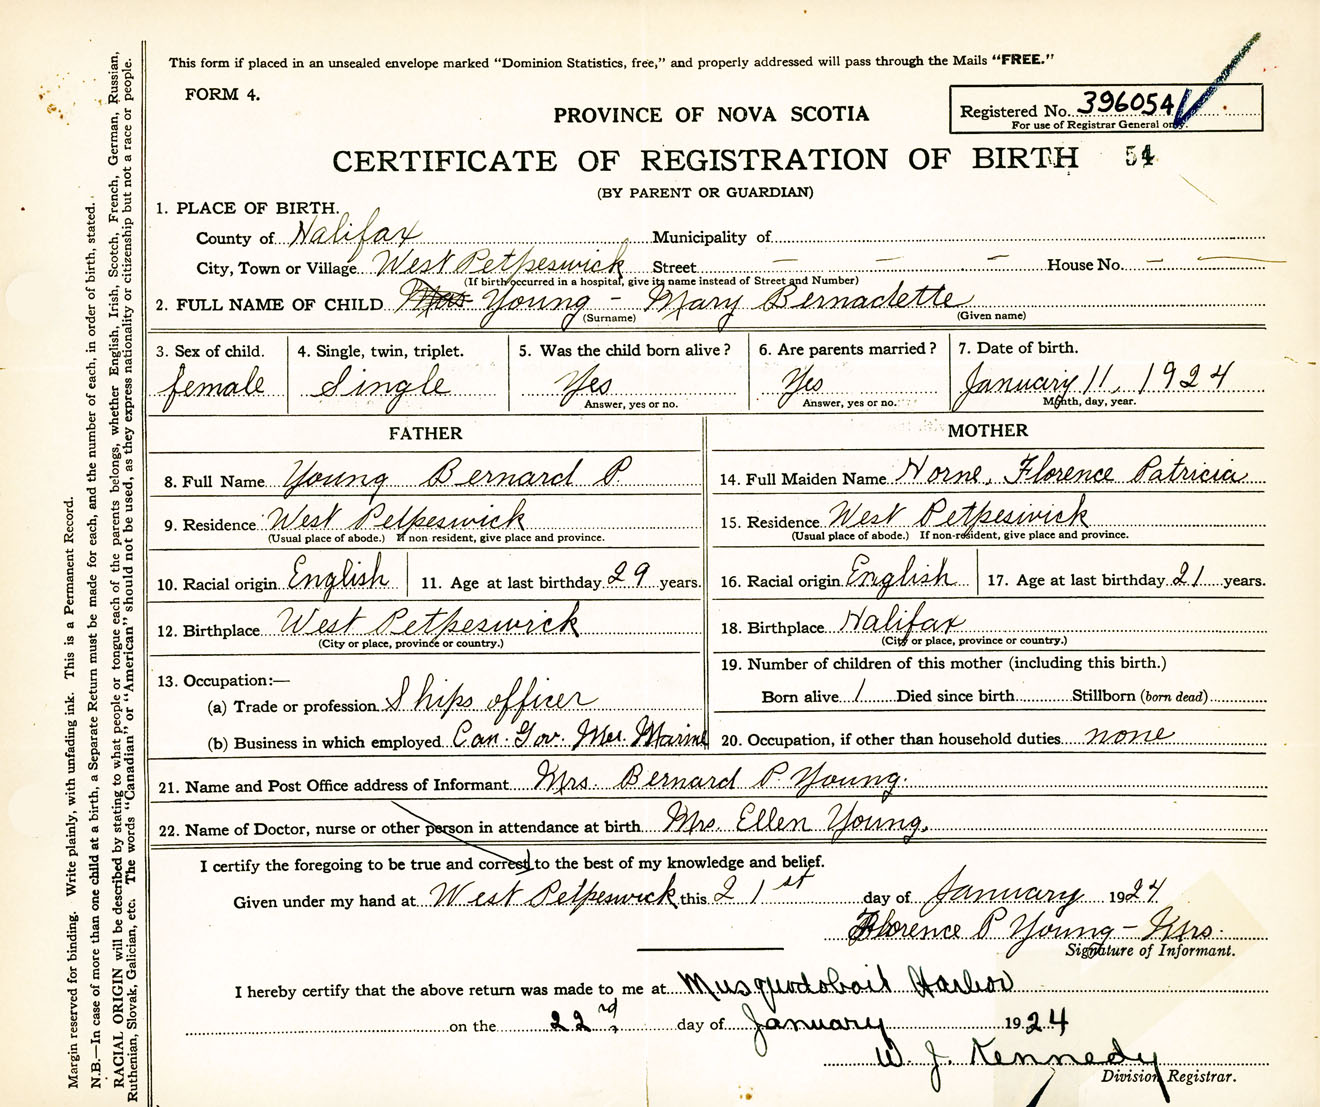 This form if placed in an unsealed envelope marked “Dominion Statistics, free,” and properly addressed will pass through the Mails “FREE.”
FORM 4.
PROVINCE OF NOVA SCOTIA
Registered No. 396054
For use of Registrar General only.
CERTIFICATE OF REGISTRATION OF BIRTH 54
(BY PARENT OR GUARDIAN)
1. PLACE OF BIRTH.
County of Halifax Municipality of
City, Town or Village West Petpeswick Street — — — House No. — —
(If birth occurred in a hospital, give its name instead of Street and Number)
2. FULL NAME OF CHILD Young - Mary Bernadette
(Surname) (Given name)
3. Sex of child. 4. Single, twin, triplet. 5. Was the child born alive? 6. Are parents married? 7. Date of birth.
female Single Yes Yes January 11, 1924
Answer, yes or no. Answer, yes or no. Month, day, year.
FATHER MOTHER
8. Full Name Young Bernard P. 14. Full Maiden Name Horne, Florence Patricia
9. Residence West Petpeswick 15. Residence West Petpeswick
(Usual place of abode.) If non resident, give place and province. (Usual place of abode.) If non-resident, give place and province.
10. Racial origin English 11. Age at last birthday 29 years. 16. Racial origin English 17. Age at last birthday 21 years.
12. Birthplace West Petpeswick 18. Birthplace Halifax
(City or place, province or country.) (City or place, province or country.)
13. Occupation:— 19. Number of children of this mother (including this birth.)
(a) Trade or profession Ships officer Born alive 1 Died since birth Stillborn (born dead)
(b) Business in which employed Can. Gov. Mer. Marine 20. Occupation, if other than household duties none
21. Name and Post Office address of Informant Mrs. Bernard P. Young.
22. Name of Doctor, nurse or other person in attendance at birth Mrs. Ellen Young.
I certify the foregoing to be true and correct to the best of my knowledge and belief.
Given under my hand at West Petpeswick this 21st day of January 1924
Florence P Young - Mrs.
Signature of Informant.
I hereby certify that the above return was made to me at Musquodoboit Harbor
on the 22nd day of January 1924
W. J. Kennedy
Division Registrar.
Margin reserved for binding. Write plainly, with unfading ink. This is a Permanent Record.
N.B.—In case of more than one child at a birth, a Separate Return must be made for each, and the number of each, in order of birth, stated.
RACIAL ORIGIN will be described by stating to what people or tongue each of the parents belongs, whether English, Irish, Scotch, French, German, Russian,
Ruthenian, Slovak, Galician, etc. The words “Canadian” or “American” should not be used, as they express nationality or citizenship but not a race or people.